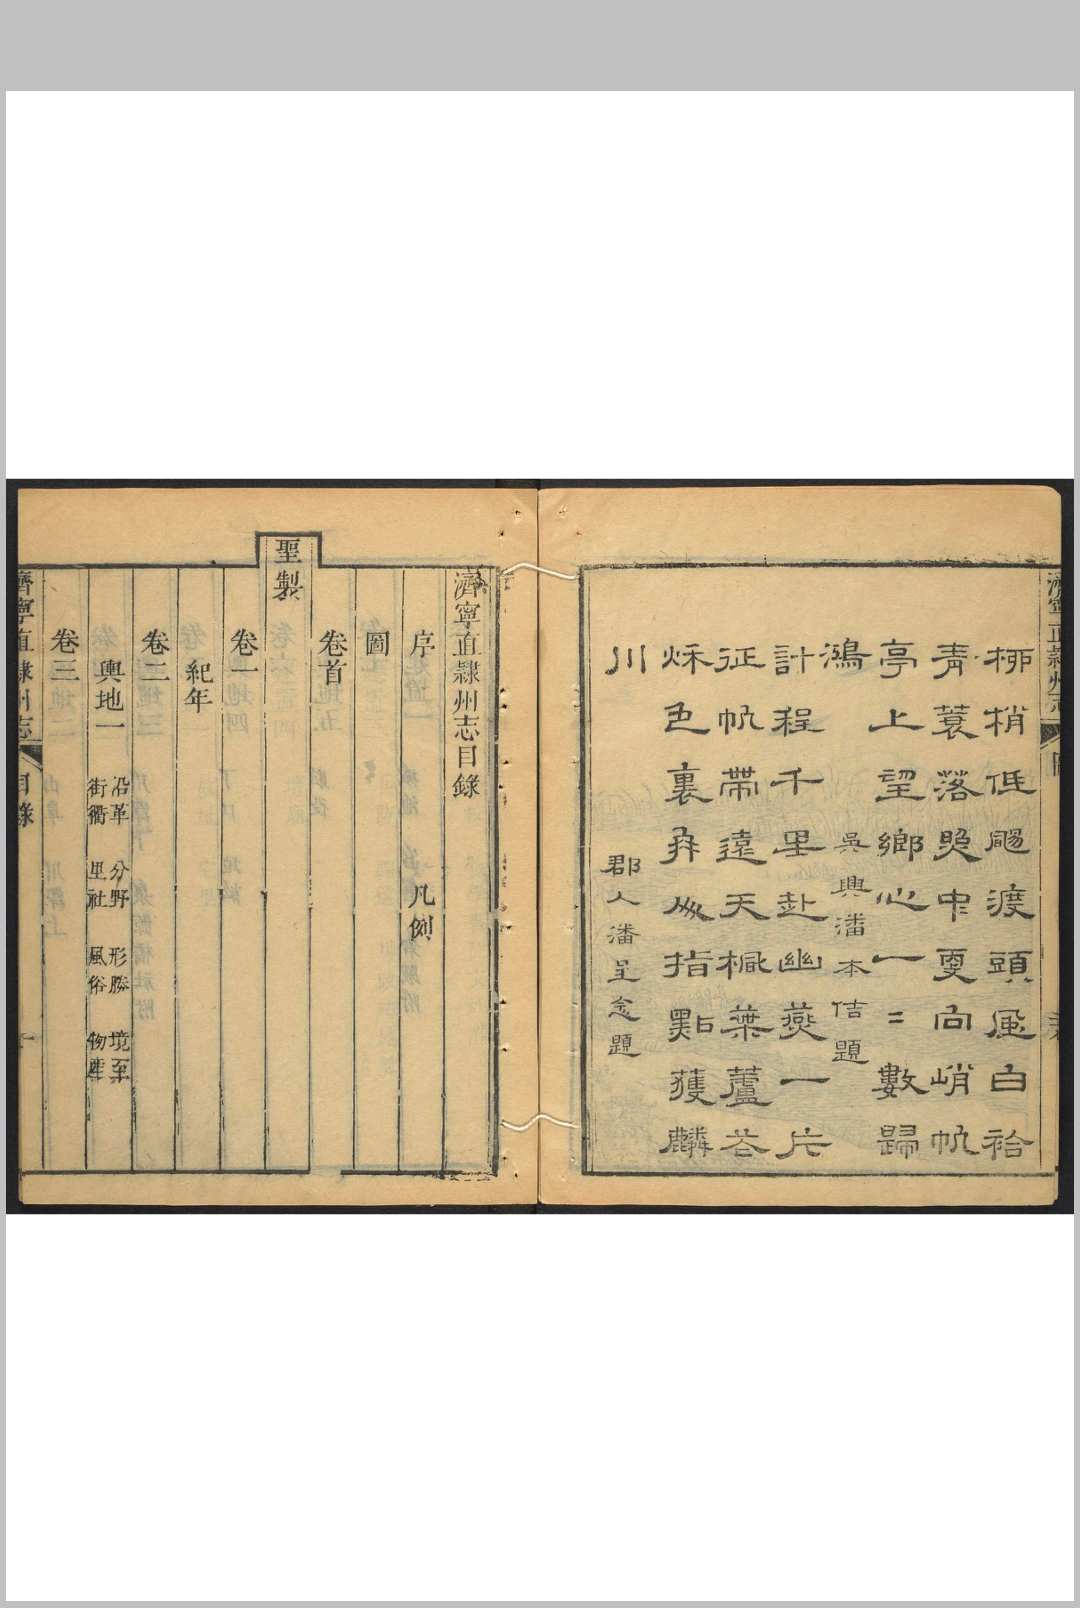 濟寧直隸州志
栁梢低颺渡頭風白袷
青蓑落照中更向峭帆
亭上望鄉心一二數歸
鴻
吳興潘本佶題
計程千里赴幽燕一片
征帆帶遠天楓葉蘆花
秋色裏舟人指點獲麟
川
郡人潘呈悆題
濟寧直隸州志目錄
序 凡例
圖
卷首
聖製
卷一
紀年
卷二
輿地一 沿革 分野 形勝 境至
街衢 里社 風俗 物產
卷三
濟寧直隸州志 目錄 一